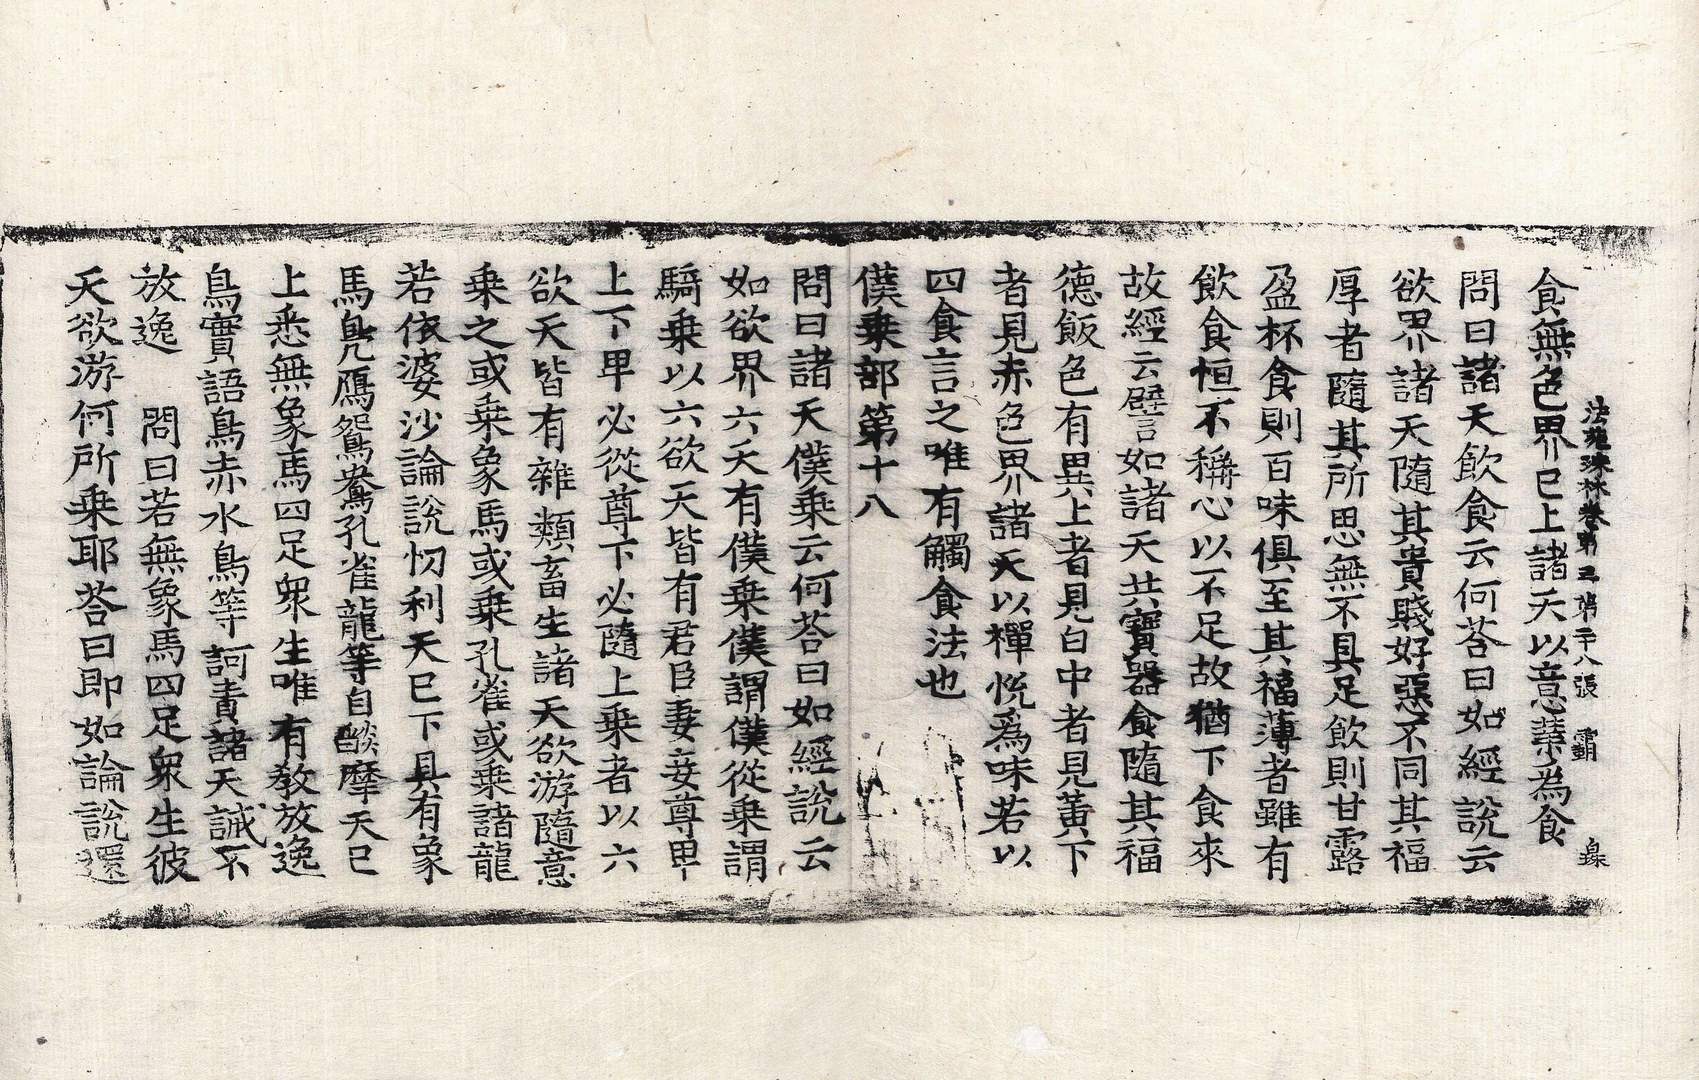 法苑珠林卷第三第二十八張 霸
食無色界已上諸天以意業為食
問曰諸天飲食云何荅曰如經說云
欲界諸天隨其貴賤好惡不同其福
厚者隨其所思無不具足飲則甘露
盈杯食則百味俱至其福薄者雖有
飲食恒不稱心以不足故猶下食來
故經云譬如諸天共寶器食隨其福
德飯色有異上者見白中者見黃下
者見赤色界諸天以禪悅爲味若以
四食言之唯有觸食法也
僕乗部第十八
問曰諸天僕乗云何荅曰如經說云
如欲界六天有僕乗僕謂僕從乗謂
騎乗以六欲天皆有君臣妻妾尊卑
上下卑必從尊下必隨上乗者以六
欲天皆有雜類畜生諸天欲游隨意
乗之或乗象馬或乗孔雀或乗諸龍
若依婆沙論說忉利天已下具有象
馬鳬鴈鴛鴦孔雀龍等自燄摩天已
上悉無象馬四足衆生唯有敎放逸
鳥實語鳥赤水鳥等訶責諸天誡不
放逸 問曰若無象馬四足衆生彼
天欲游何所乗耶荅曰即如論說還